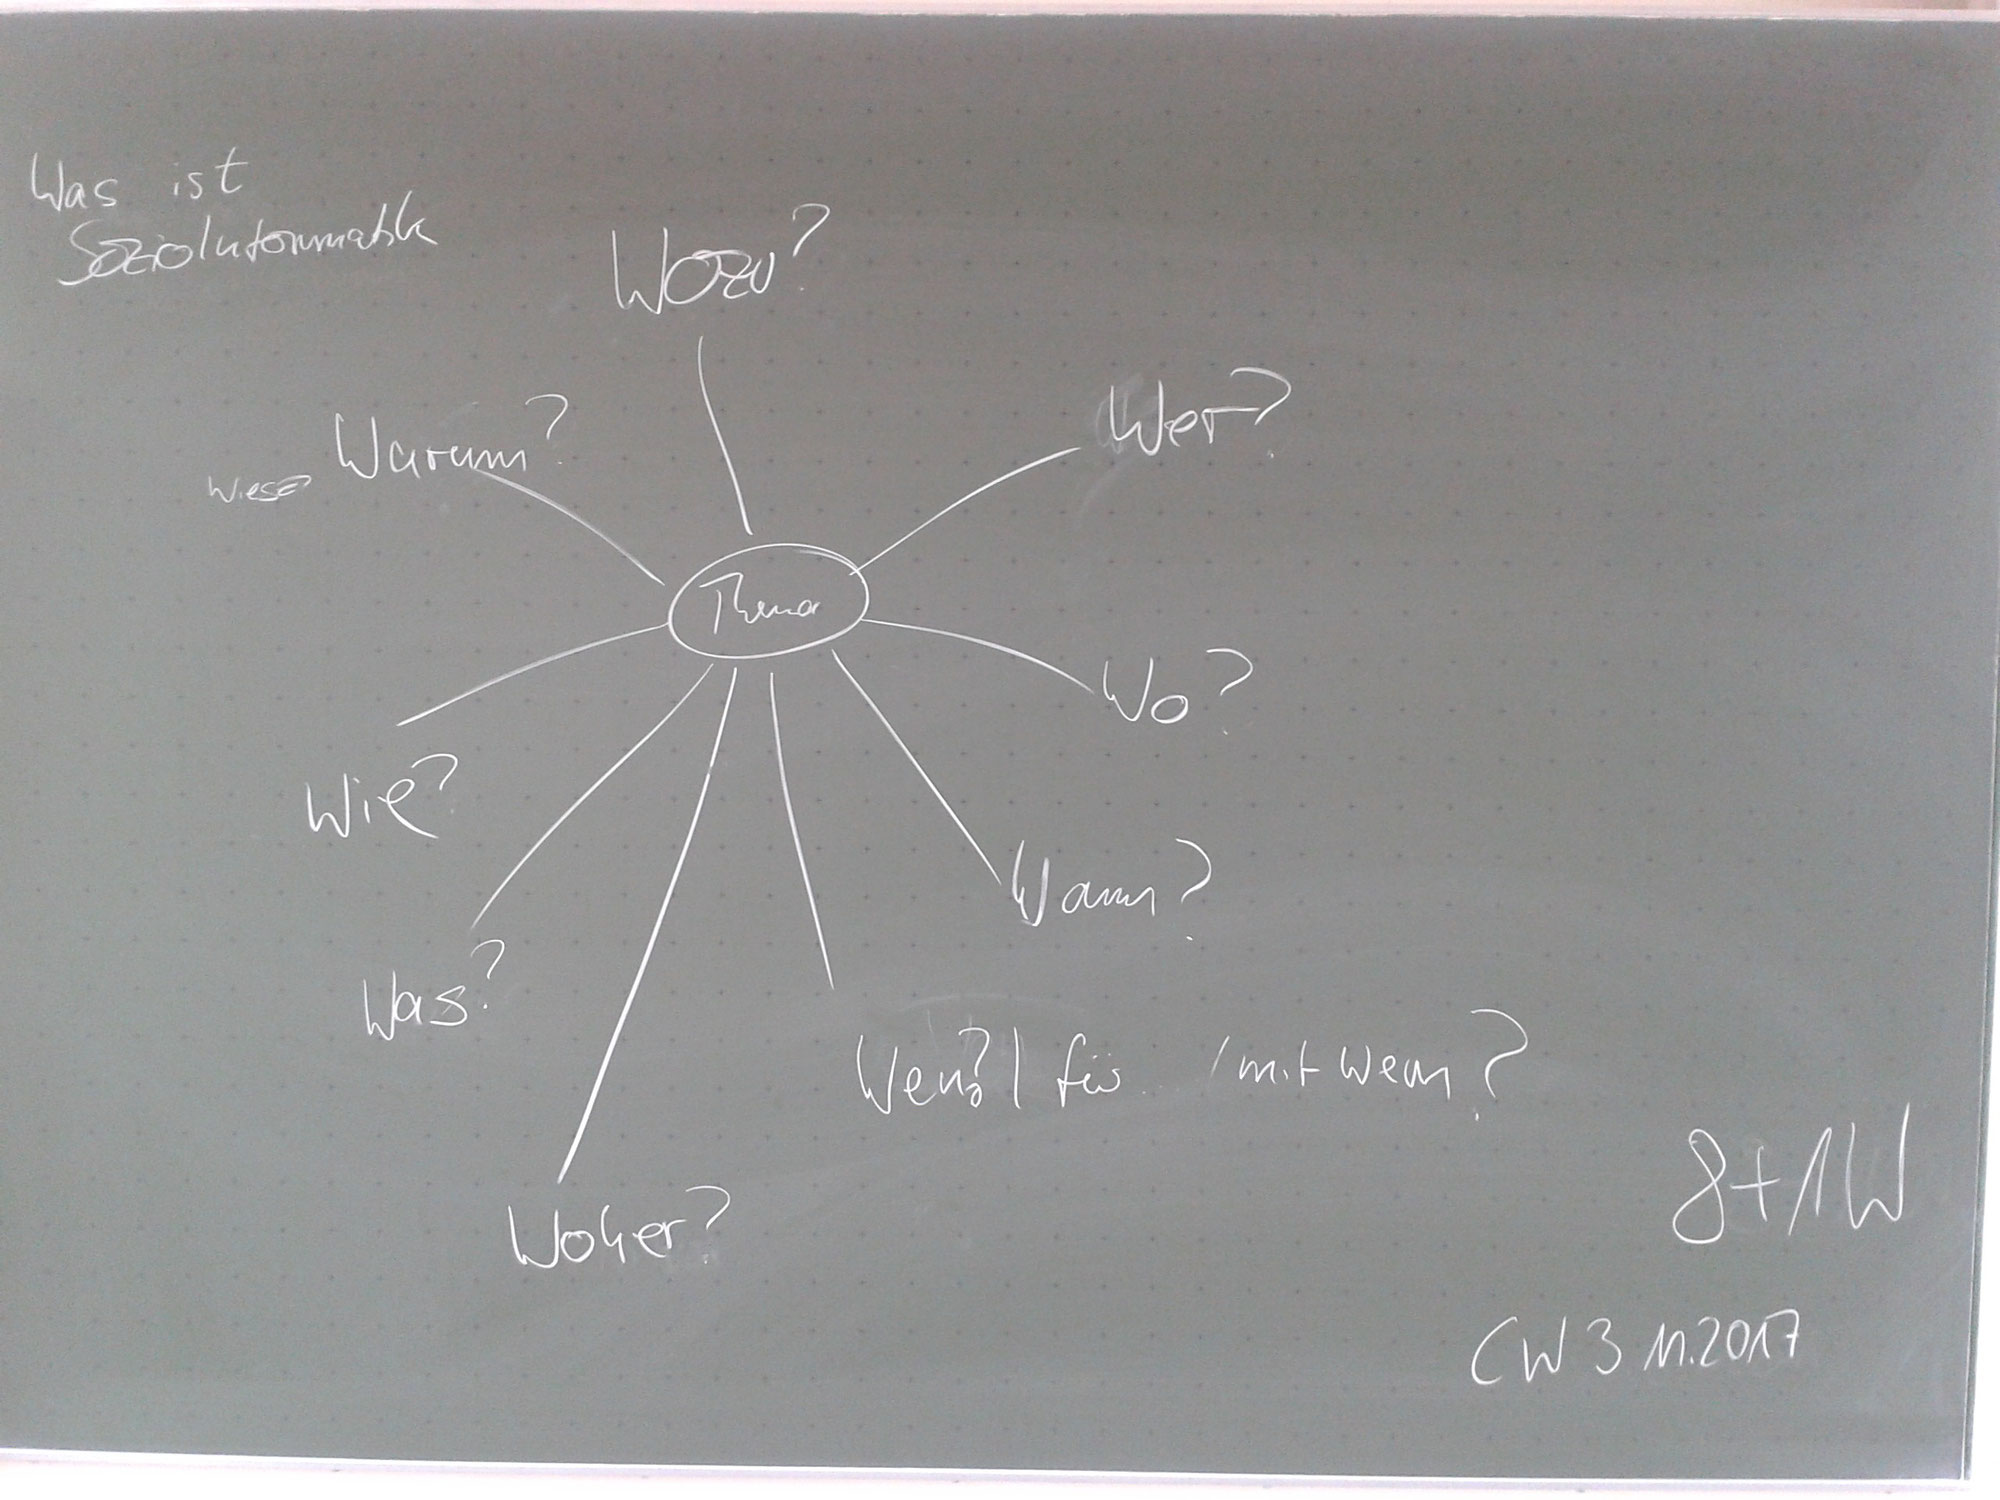 Was ist
Sozioinformatik
Wozu?
Wer?
Warum?
Wieso?
Thema
Wo?
Wie?
Wann?
Was?
Wen?/ für /mit wem?
Woher?
8+1W
CW 3 11.2017